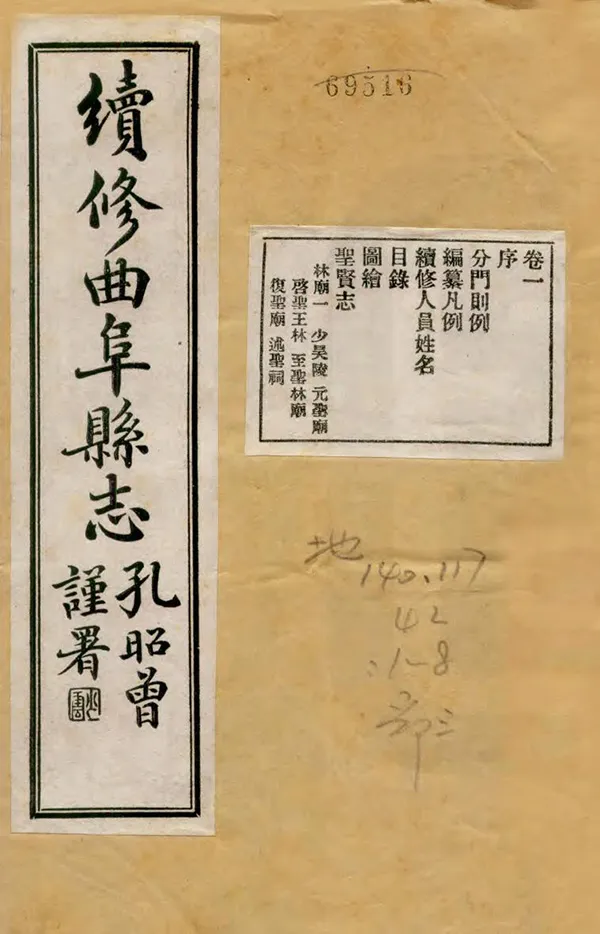 69516
續修曲阜縣志
孔昭曾
謹署
卷一
序
分門則例
編纂凡例
續修人員姓名
目錄
圖繪
聖賢志
林廟一 少昊陵 元聖廟
啓聖王林 至聖林廟
復聖廟 述聖祠
地
140.117
42
:1-8